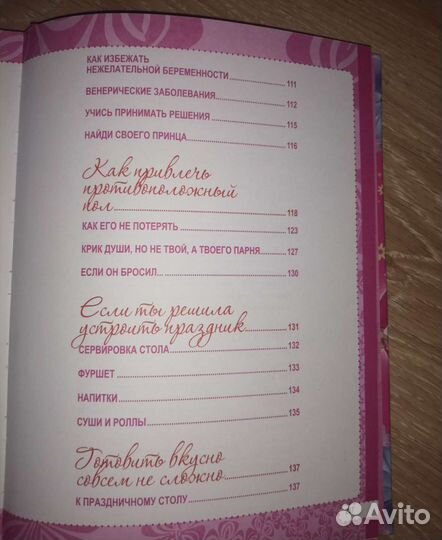 КАК ИЗБЕЖАТЬ
НЕЖЕЛАТЕЛЬНОЙ БЕРЕМЕННОСТИ 111
ВЕНЕРИЧЕСКИЕ ЗАБОЛЕВАНИЯ 112
УЧИСЬ ПРИНИМАТЬ РЕШЕНИЯ 115
НАЙДИ СВОЕГО ПРИНЦА 116
Как привлечь
противоположный
пол 118
КАК ЕГО НЕ ПОТЕРЯТЬ 123
КРИК ДУШИ, НО НЕ ТВОЙ, А ТВОЕГО ПАРНЯ 127
ЕСЛИ ОН БРОСИЛ... 130
Если ты решила
устроить праздник 131
СЕРВИРОВКА СТОЛА 132
ФУРШЕТ 133
НАПИТКИ 134
СУШИ И РОЛЛЫ 135
Готовить вкусно
совсем не сложно 137
К ПРАЗДНИЧНОМУ СТОЛУ 137
Avito